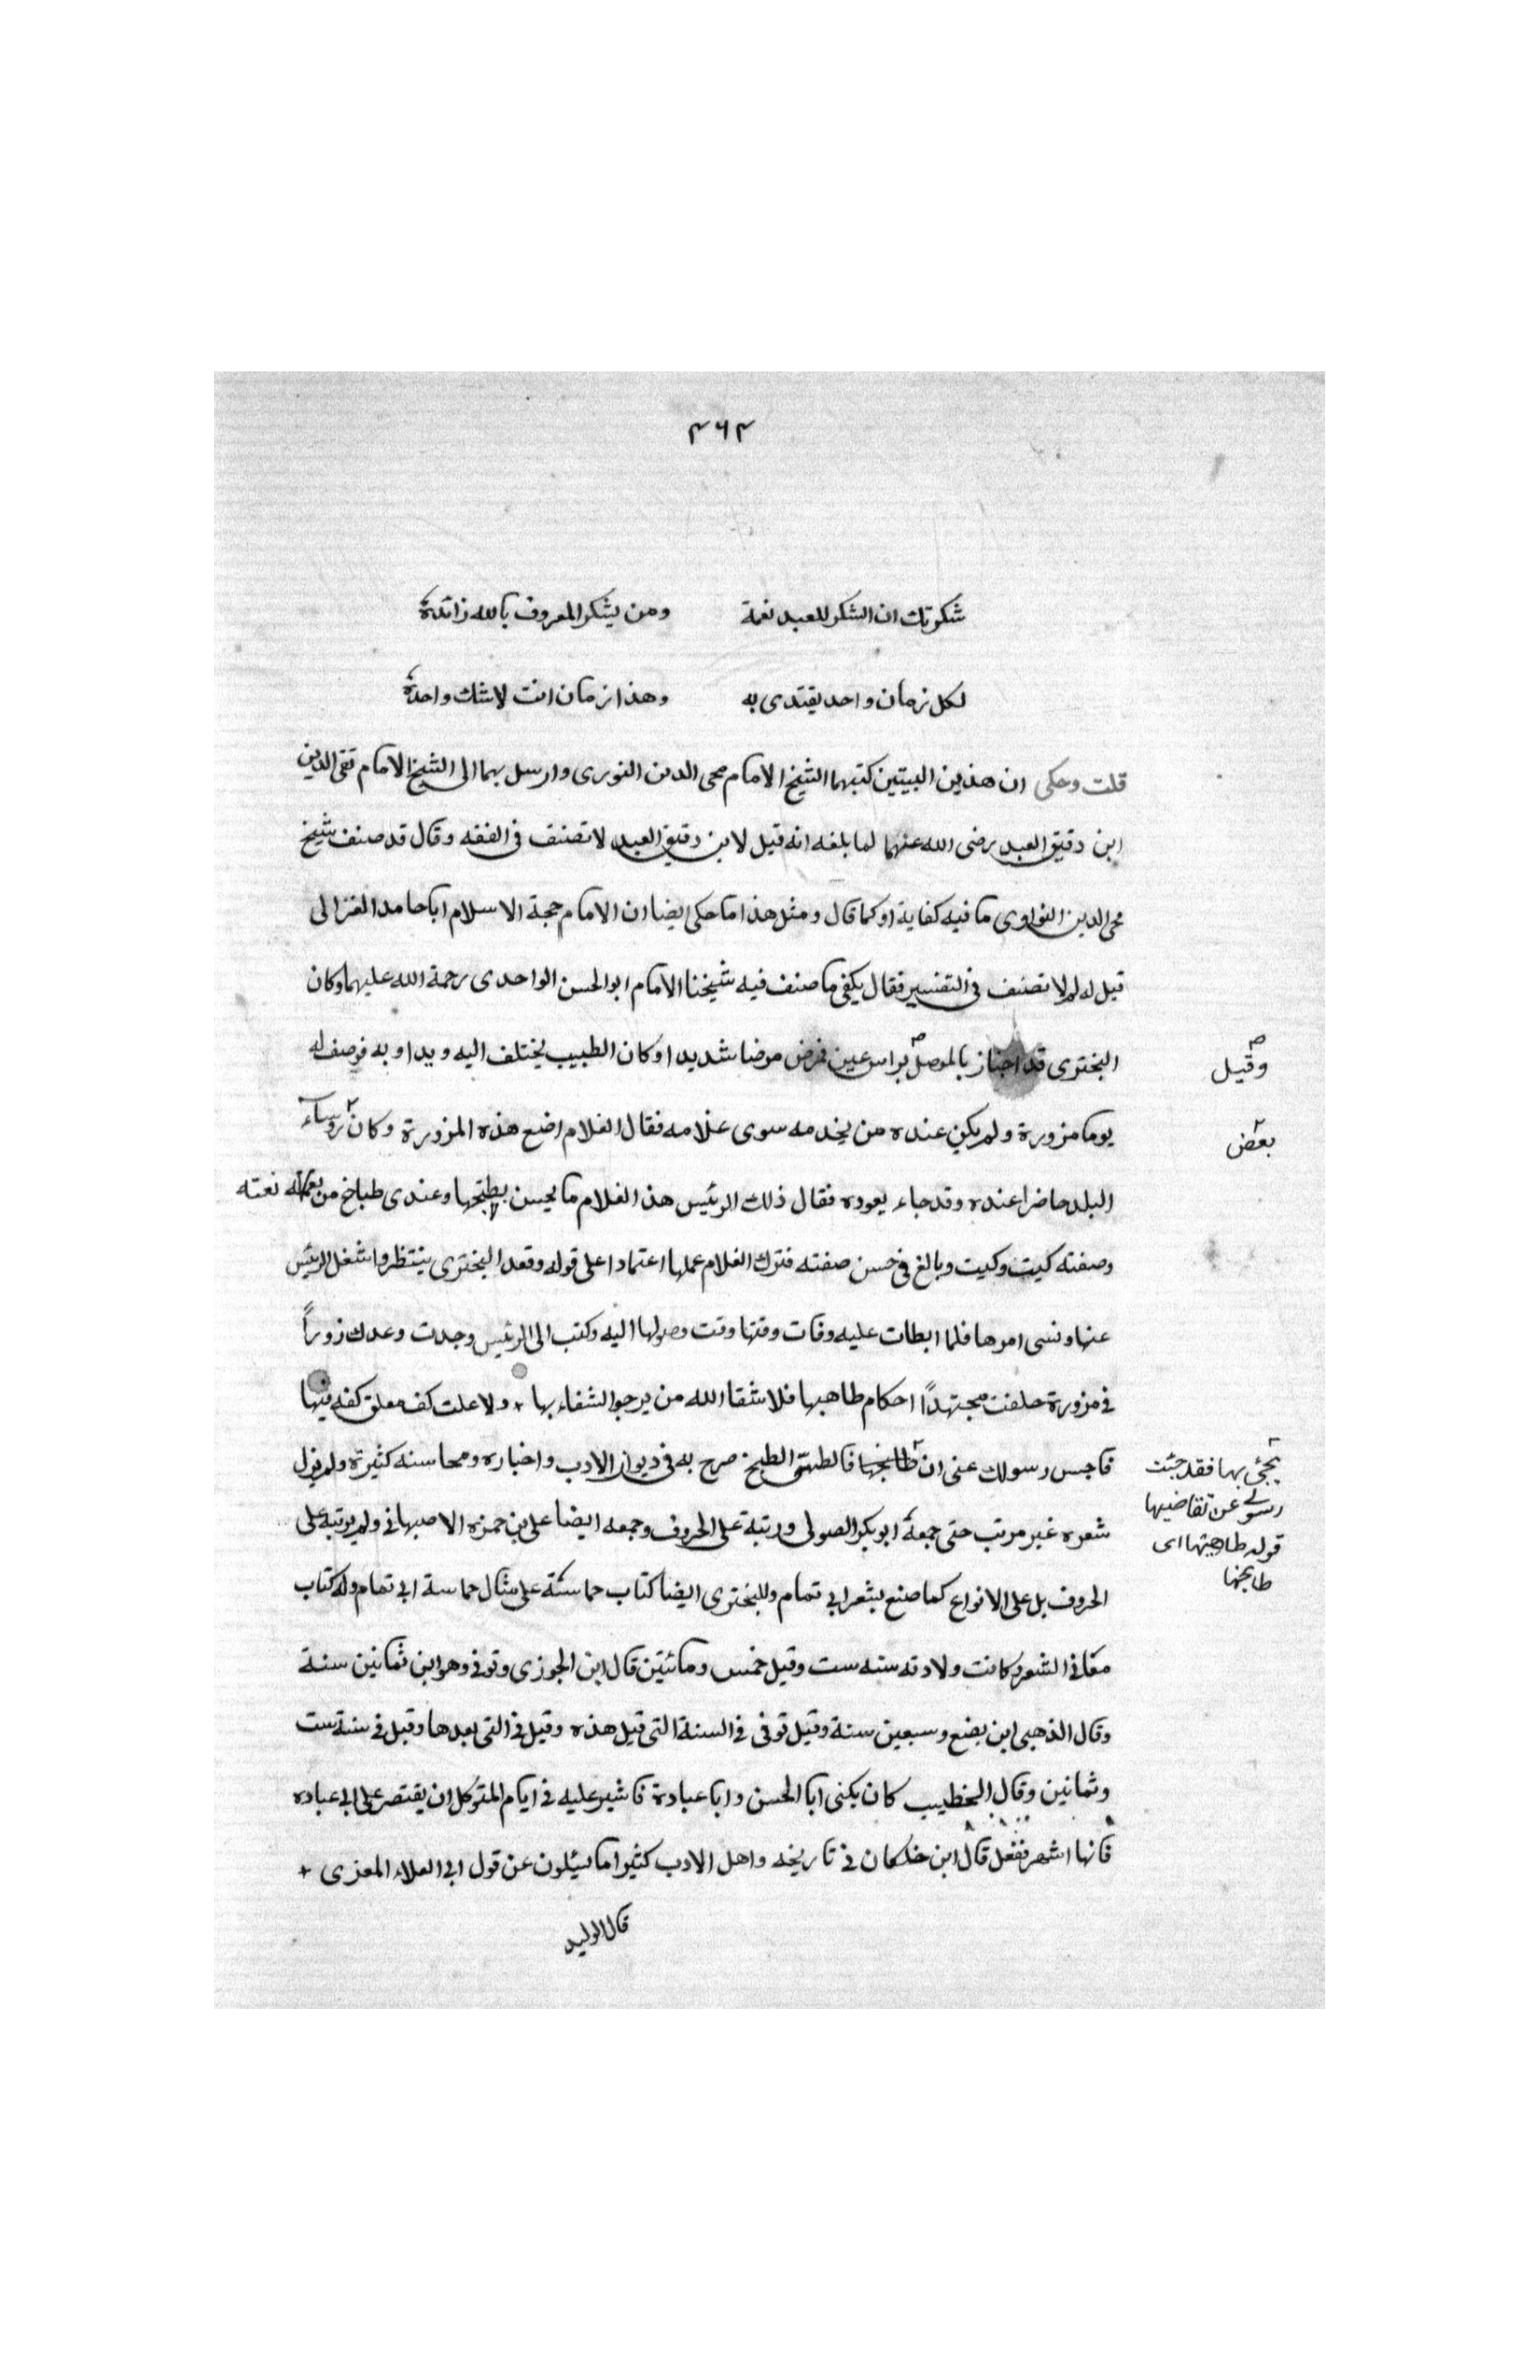 ٤٦٤
شكرتك ان الشكر للعبد نعمة ومن يشكر المعروف بالله زائدة
لكل زمان واحد يقتدى به وهذا زمان انت لاشك واحدة
قلت وحكى ان هذين البيتين كتبهما الشيخ الامام محى الدين النورى وارسل بهما الى الشيخ الامام تقى الدين
ابن دقيق العبد رضى الله عنهما لما بلغه انه قيل لابن دقيق العبد لا تصنف فى الفقه وقال قد صنف شيخ
محى الدين النواوى ما فيه كفاية او كما قال ومثل هذا ما حكى ايضا ان الامام حجة الاسلام ابا حامد الغزالى
قيل له لم لا تصنف فى التفسير فقال يكفى ما صنف فيه شيخنا الامام ابو الحسن الواحدى رحمة الله عليهما وكان
البختري قد اجتاز بالموصل براس عين فمرض مرضا شديدا وكان الطبيب يختلف اليه ويداوبه فوصف له
وقيل
يوما مزورة ولم يكن عنده من يخدمه سوى غلامه فقال الغلام اضع هذه المزورة وكان روساء
بعض
البلد حاضرا عنده وقد جاء يعوده فقال ذلك الرئيس هذ الغلام ما يحسن يطبخها وعندى طباخ من نعته
وصفته كيت وكيت وبالغ فى حسن صفته فترك الغلام عملها اعتمادا على قوله وقعد البختري ينتظر واشغل الرئيس
عنها ونسى امرها فلما ابطات عليه وفات وقتها وقت وصولها اليه وكتب الى الرئيس وجدت وعدك زوراً
فى مزورة حلفت مجتهداً احكام طاهبها فلا شفا الله من يرجو الشفاء بها ولا علت كف معلق كفه فيها
فاحبس رسولك عنى ان فالطهى الطبخ صرح به فى ديوان الادب واخباره ومحاسنه كثيرة ولم يزل
يجئ بها فقد جئت
رسولى عن تقاضيها
قوله طاهيها اى
طابخها
شعره غير مرتب حتى جمعه ابو بكر الصولى ورتبة على الحروف وجمعه ايضا على بن حمزه الاصبهانى ولم يرتبه على
الحروف بل على الانواع كما صنع بشعر ابى تمام وللبختري ايضا كتاب حماسة على مثال حماسة ابى تمام وله كتاب
معانى الشعر وكانت ولادته سنه ست وقيل خمس ومائتين قال ابن الجوزى وتوفى وهو ابن ثمانين سنة
وقال الذهبى ابن بضع وسبعين سنة وقيل توفى فى السنة التى قبل هذه وقيل فى التى بعدها وقيل فى سنة ست
وثمانين وقال الخطيب كان يكنى ابا الحسن وابا عبادة فاشير عليه فى ايام المتوكل ان يقتصر على ابى عباده
فانها اشهر ففعل قال ابن خلكان فى تاريخه واهل الادب كثيرا ما يسئلون عن قول ابى العلاء المعزى
قال الوليد